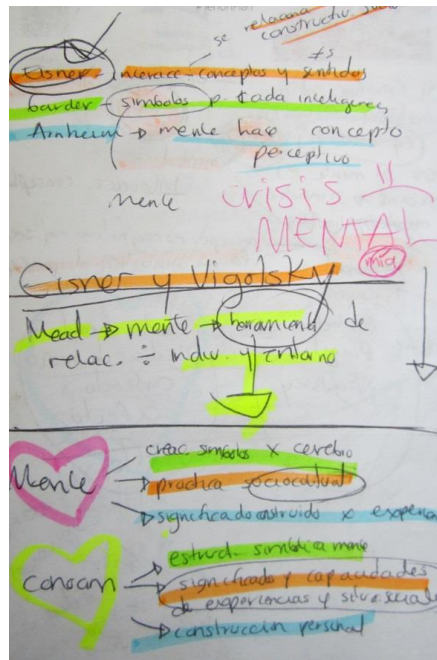 se relaciona
constructiv. social
≠s
Eisner - interacc - conceptos y sentidos
Garder - símbolos p. cada inteligenc
Arnheim → mente hace concepto
perceptivo
mente
CRISIS
MENTAL
mia
Eisner y Vigotsky
Mead → mente → herramienta de
relac. ÷ indiv. y entorno
Mente
creac. símbolos x cerebro
→ práctica sociocultural
→ significado construido x experien
conocim
→ estruct. simbólica mente
→ significado y capacidades
de experiencias y sit. sociale
→ construcción personal